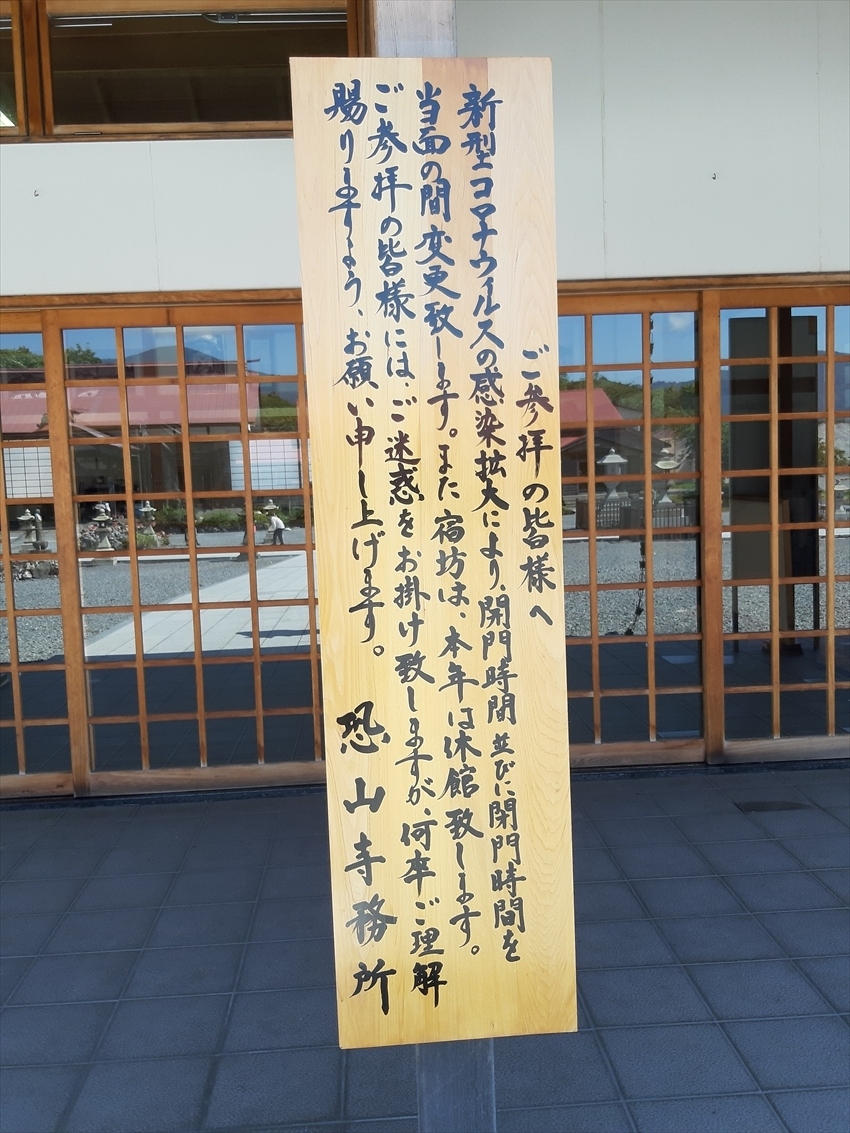 ご参拝の皆様へ
新型コロナウィルスの感染拡大により、開門時間並びに閉門時間を
当面の間変更致します。また宿坊は、本年は休館致します。
ご参拝の皆様には、ご迷惑をお掛け致しますが、何卒ご理解
賜りますよう、お願い申し上げます。 恐山寺務所